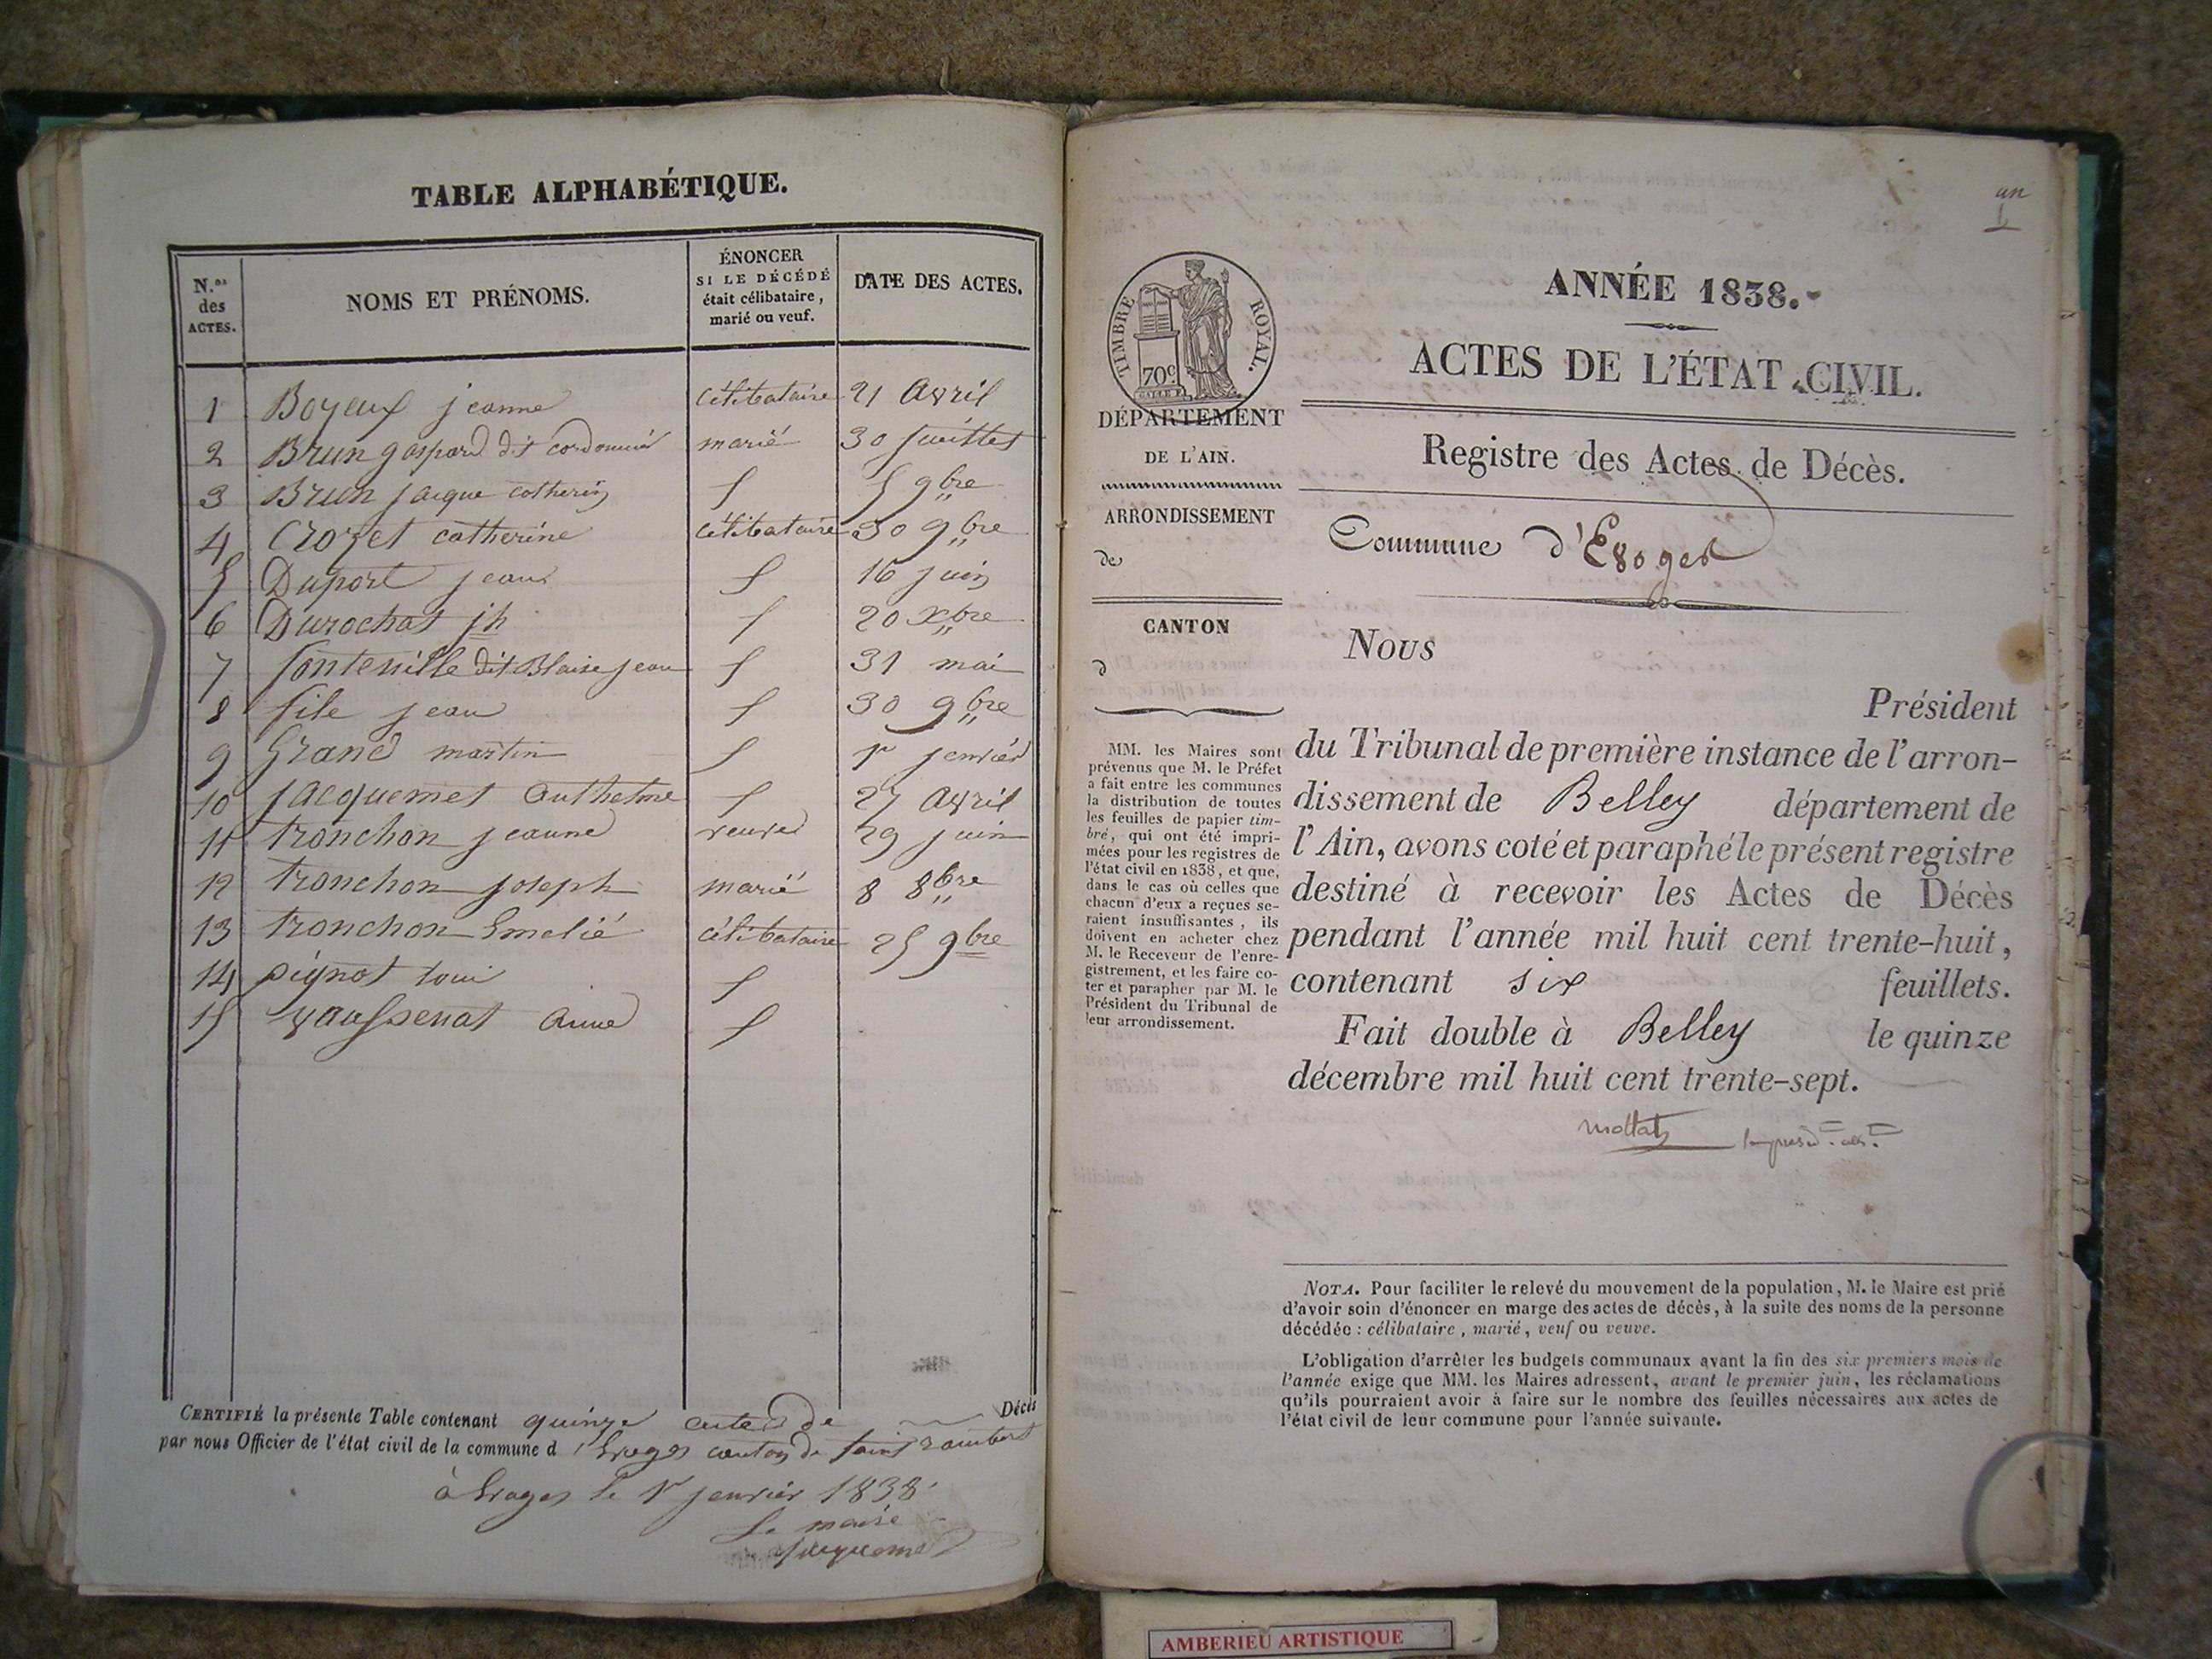 TABLE ALPHABÉTIQUE.
N.os des ACTES.
NOMS ET PRÉNOMS.
ÉNONCER
SI LE DÉCÉDÉ
était célibataire,
marié ou veuf.
DATE DES ACTES.
1 Boyeux jeanne célibataire 21 avril
2 Brun gaspard dit cordonnier marié 30 juillet
3 Brun jacque catherin 5 9bre
4 Crozet catherine célibataire 30 9bre
5 Duport jean 16 juin
6 Durochat jh 20 xbre
7 fontenille dit Blaise jean 31 mai
8 file jean 30 9bre
9 Grand martin 1r jenvier
10 jacquemet anthelme 27 avril
11 tronchon jeanne veuve 29 juin
12 tronchon joseph marié 8 8bre
13 tronchon Emelié célibataire 25 9bre
14 pignot loui
15 vaussenat anne
CERTIFIÉ la présente Table contenant quinze actes de Décès
par nous Officier de l'état civil de la commune d'Evoges canton de saint rambert
à Evoges le 1r jenvier 1838
Le maire
jacquemet
un
1
TIMBRE ROYAL.
70c
ANNÉE 1838.
ACTES DE L'ÉTAT CIVIL.
DÉPARTEMENT
DE L'AIN.
ARRONDISSEMENT
de
CANTON
d
Registre des Actes de Décès.
Commune d'Evoges
MM. les Maires sont
prévenus que M. le Préfet
a fait entre les communes
la distribution de toutes
les feuilles de papier tim-
bré, qui ont été impri-
mées pour les registres de
l'état civil en 1838, et que,
dans le cas où celles que
chacun d'eux a reçues se-
raient insuffisantes, ils
doivent en acheter chez
M. le Receveur de l'enre-
gistrement, et les faire co-
ter et parapher par M. le
Président du Tribunal de
leur arrondissement.
Nous
Président
du Tribunal de première instance de l'arron-
dissement de Belley département de
l'Ain, avons coté et paraphé le présent registre
destiné à recevoir les Actes de Décès
pendant l'année mil huit cent trente-huit,
contenant six feuillets.
Fait double à Belley le quinze
décembre mil huit cent trente-sept.
NOTA. Pour faciliter le relevé du mouvement de la population, M. le Maire est prié
d'avoir soin d'énoncer en marge des actes de décès, à la suite des noms de la personne
décédée : célibataire, marié, veuf ou veuve.
L'obligation d'arrêter les budgets communaux avant la fin des six premiers mois de
l'année exige que MM. les Maires adressent, avant le premier juin, les réclamations
qu'ils pourraient avoir à faire sur le nombre des feuilles nécessaires aux actes de
l'état civil de leur commune pour l'année suivante.
AMBERIEU ARTISTIQUE